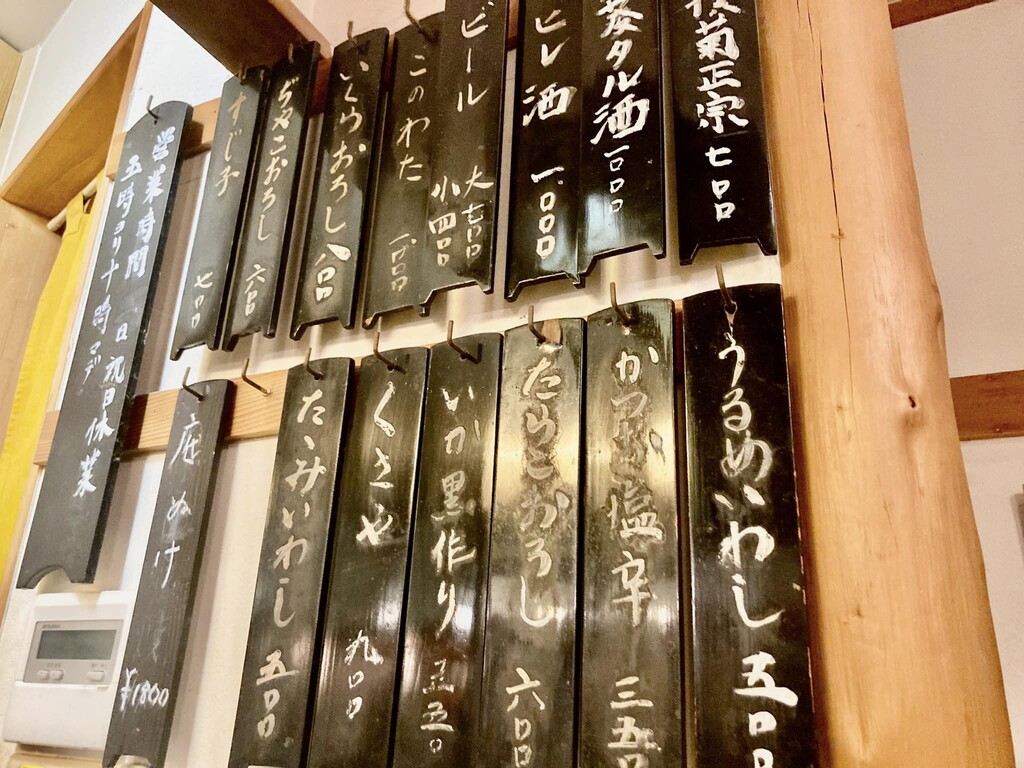 菊正宗 七〇〇
菱タル酒 一〇〇〇
ヒレ酒 一.〇〇〇
ビール 大 七〇〇
小 四〇〇
このわた
いくらおろし 八〇〇
おろし 六〇〇
すじ子 七〇〇
営業時間
五時ヨリ十時マデ
日祝日休業
うるめいわし 五〇〇
かつお塩辛 三五〇
たらこおろし 六〇〇
いか黒作り 五五〇
くさや 九〇〇
たゝみいわし 五〇〇
底ぬけ
¥1800